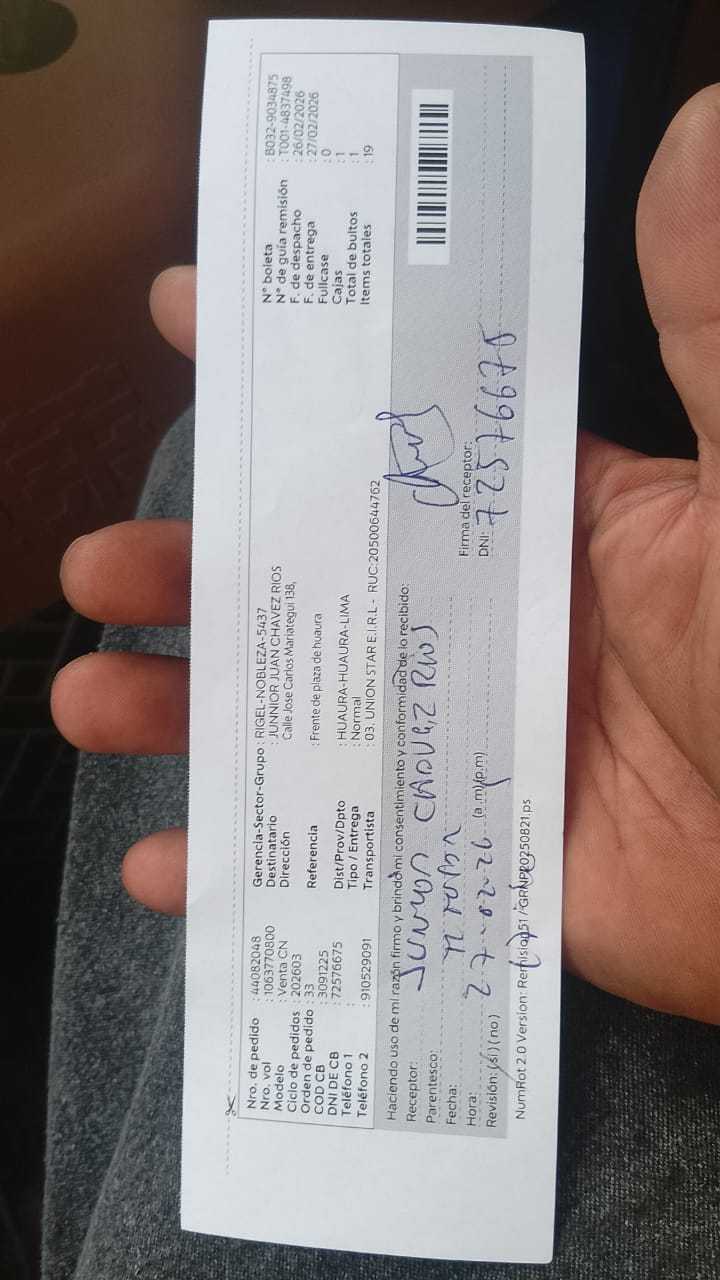 Nro. de pedido : 44082048
Nro. vol : 1063770800
Modelo : Venta CN
Ciclo de pedidos : 202603
Orden de pedido : 33
COD CB : 3091225
DNI DE CB : 72576675
Teléfono 1 :
Teléfono 2 : 910529091
Gerencia-Sector-Grupo : RIGEL-NOBLEZA-5437
Destinatario : JUNNIOR JUAN CHAVEZ RIOS
Dirección Calle Jose Carlos Mariategui 138,
Referencia : Frente de plaza de huaura
Dist/Prov/Dpto : HUAURA-HUAURA-LIMA
Tipo / Entrega : Normal
Transportista : 03. UNION STAR E.I.R.L - RUC:20500644762
N° boleta : B032-9034875
N° de guía remisión : T001-4837498
F. de despacho : 26/02/2026
F. de entrega : 27/02/2026
Fullcase : 0
Cajas : 1
Total de bultos : 1
Items totales : 19
Haciendo uso de mi razón firmo y brindo mi consentimiento y conformidad de lo recibido:
Receptor: JUNIOR CHAVEZ RIOS
Parentesco: TITULAR
Fecha: 27-02-26
Hora: (a.m)(p.m)
Revisión: (si) (no)
Firma del receptor:
DNI: 72576675
NumRot 2.0 Version: Remision51 /GRNP20250821.ps